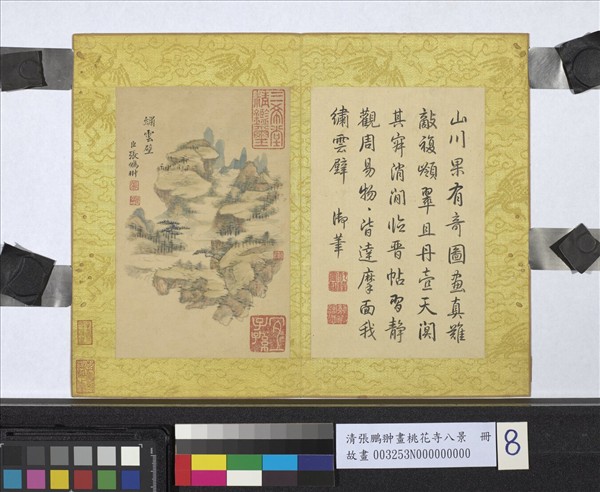 山川果有奇圖畫真難
敵複嶺翠且丹壺天闃
其寂消閒臨晉帖習靜
觀周易物〻皆達摩面我
繡雲壁 御筆
繡雲壁
臣張鵬翀
三希堂精鑑璽
宜子孫
清張鵬翀畫桃花寺八景 冊
故畫 003253N000000000
8